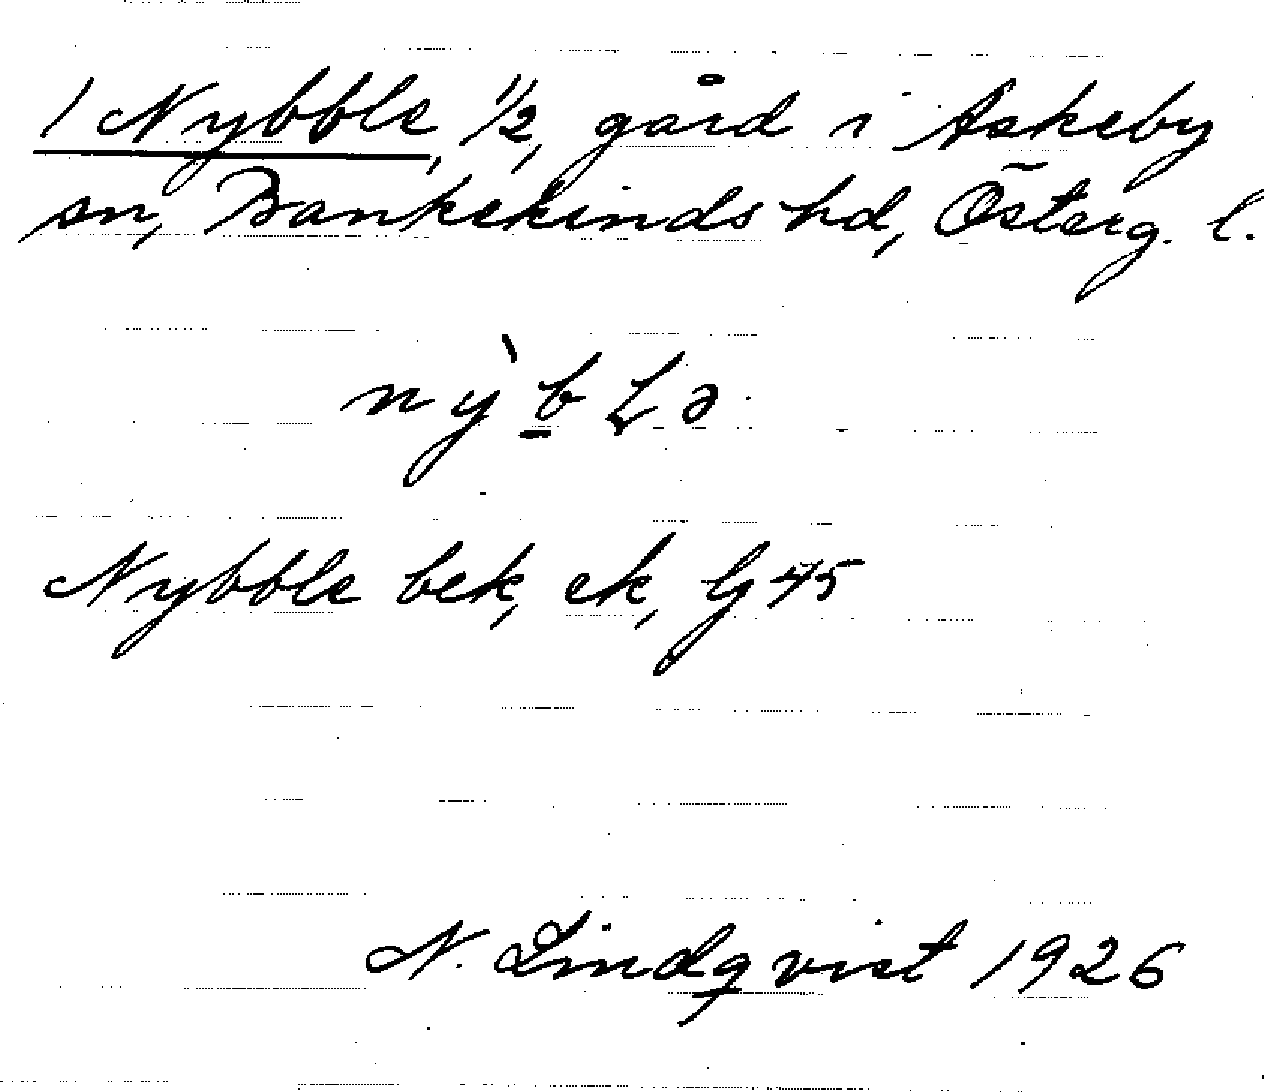 1 Nybble, 1/2, gård i Askeby
sn, Bankekinds hd, Österg. l.
nỳb̲Lə.
Nybble bek, ek, Gj 45
N. Lindqvist 1926